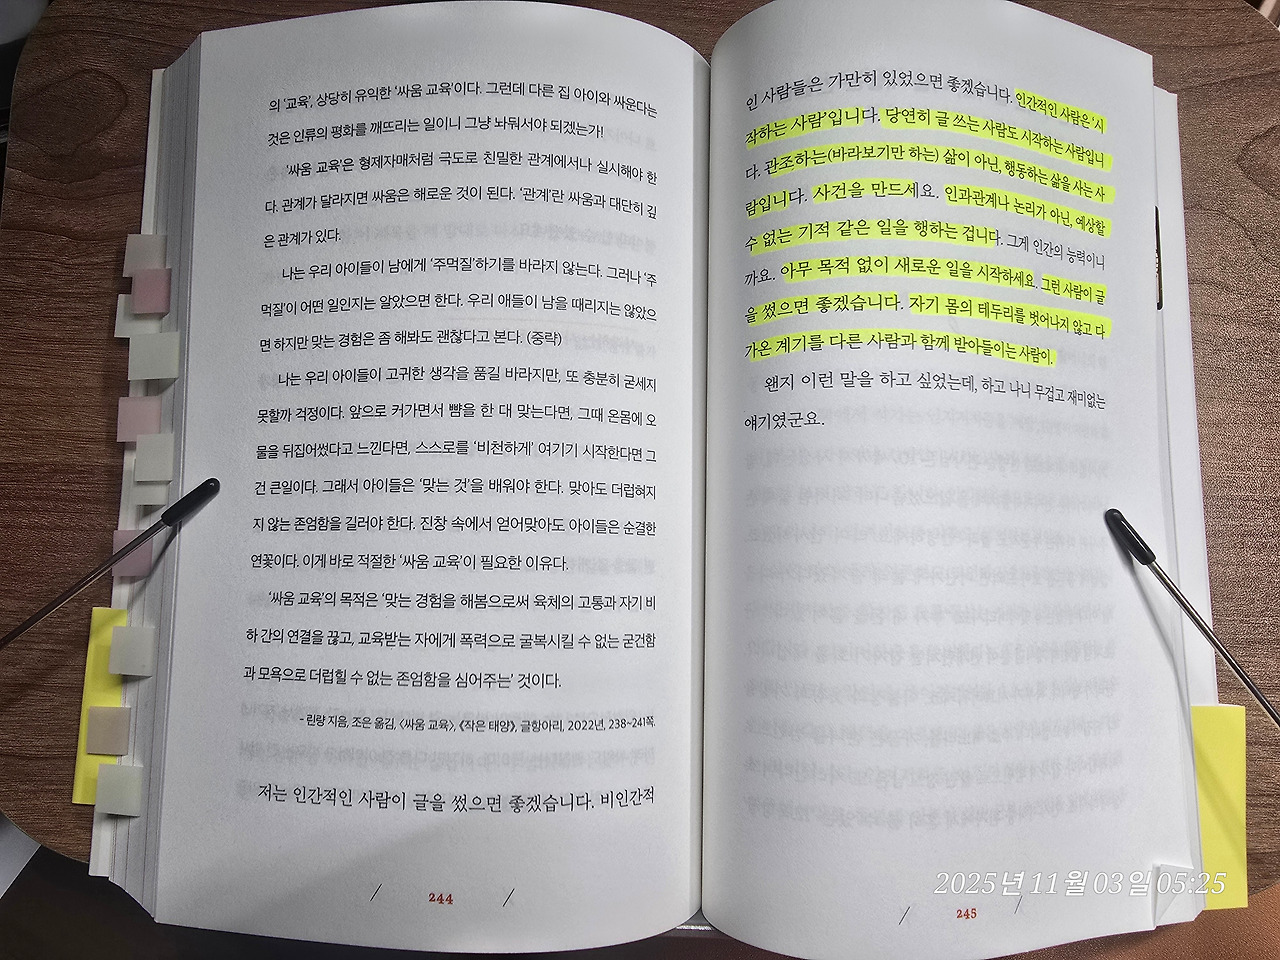 의 ‘교육’, 상당히 유익한 ‘싸움 교육’이다. 그런데 다른 집 아이와 싸운다는
것은 인류의 평화를 깨뜨리는 일이니 그냥 놔둬서야 되겠는가!
‘싸움 교육’은 형제자매처럼 극도로 친밀한 관계에서나 실시해야 한
다. 관계가 달라지면 싸움은 해로운 것이 된다. ‘관계’란 싸움과 대단히 깊
은 관계가 있다.
나는 우리 아이들이 남에게 ‘주먹질’하기를 바라지 않는다. 그러나 ‘주
먹질’이 어떤 일인지는 알았으면 한다. 우리 애들이 남을 때리지는 않았으
면 하지만 맞는 경험은 좀 해봐도 괜찮다고 본다. (중략)
나는 우리 아이들이 고귀한 생각을 품길 바라지만, 또 충분히 굳세지
못할까 걱정이다. 앞으로 커가면서 뺨을 한 대 맞는다면, 그때 온몸에 오
물을 뒤집어썼다고 느낀다면, 스스로를 ‘비천하게’ 여기기 시작한다면 그
건 큰일이다. 그래서 아이들은 ‘맞는 것’을 배워야 한다. 맞아도 더럽혀지
지 않는 존엄함을 길러야 한다. 진창 속에서 얻어맞아도 아이들은 순결한
연꽃이다. 이게 바로 적절한 ‘싸움 교육’이 필요한 이유다.
‘싸움 교육’의 목적은 ‘맞는 경험을 해봄으로써 육체의 고통과 자기 비
하 간의 연결을 끊고, 교육받는 자에게 폭력으로 굴복시킬 수 없는 굳건함
과 모욕으로 더럽힐 수 없는 존엄함을 심어주는’ 것이다.
- 린량 지음, 조은 옮김, 〈싸움 교육〉, 《작은 태양》, 글항아리, 2022년, 238~241쪽.
저는 인간적인 사람이 글을 썼으면 좋겠습니다. 비인간적
/ 244 /
인 사람들은 가만히 있었으면 좋겠습니다. 인간적인 사람은 ‘시
작하는 사람’입니다. 당연히 글 쓰는 사람도 시작하는 사람입니
다. 관조하는(바라보기만 하는) 삶이 아닌, 행동하는 삶을 사는 사
람입니다. 사건을 만드세요. 인과관계나 논리가 아닌, 예상할
수 없는 기적 같은 일을 행하는 겁니다. 그게 인간의 능력이니
까요. 아무 목적 없이 새로운 일을 시작하세요. 그런 사람이 글
을 썼으면 좋겠습니다. 자기 몸의 테두리를 벗어나지 않고 다
가온 계기를 다른 사람과 함께 받아들이는 사람이.
왠지 이런 말을 하고 싶었는데, 하고 나니 무겁고 재미없는
얘기였군요.
/ 245 /
2025년 11월 03일 05:25